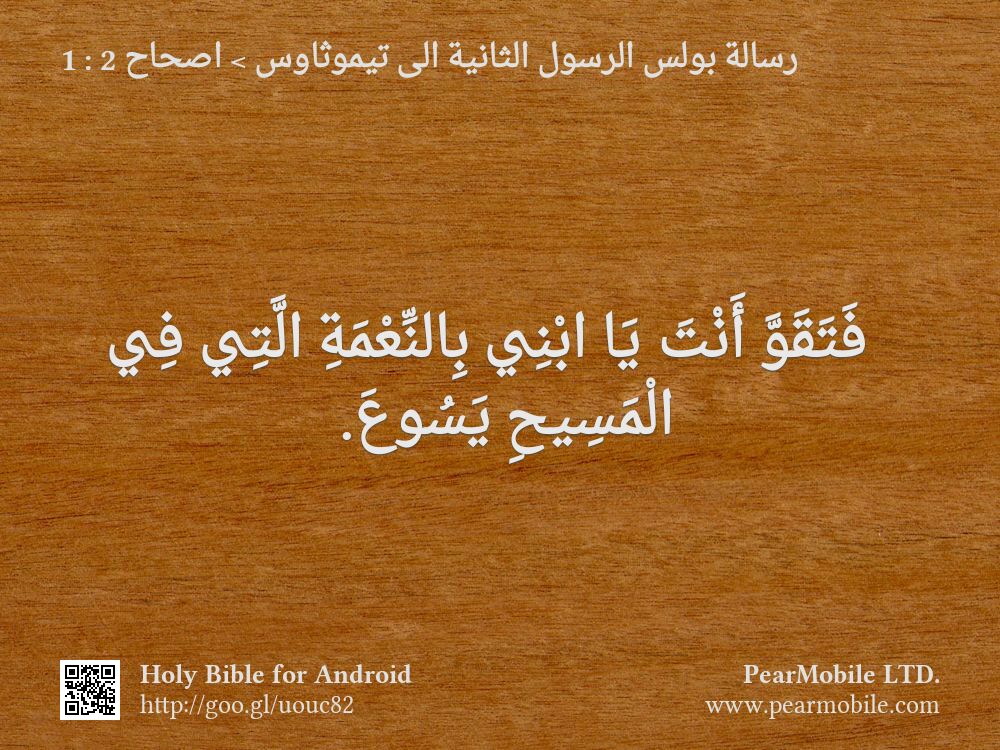 رسالة بولس الرسول الثانية الى تيموثاوس > اصحاح 2 : 1
فَتَقَوَّ أَنْتَ يَا ابْنِي بِالنِّعْمَةِ الَّتِي فِي
الْمَسِيحِ يَسُوعَ.
Holy Bible for Android
http://goo.gl/uouc82
PearMobile LTD.
www.pearmobile.com